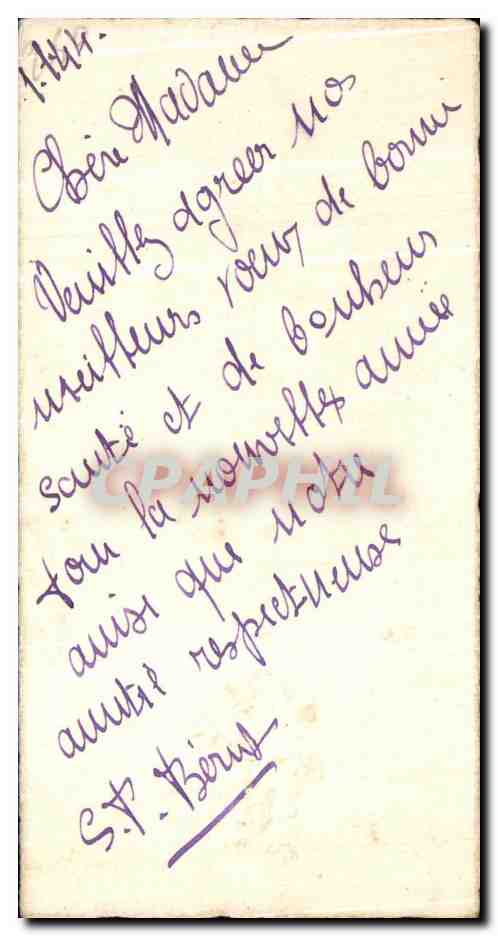 1.1.44.
Chère Madame
Veuillez agréer nos
meilleurs voeux de bonne
santé et de bonheur
pour la nouvelle année
ainsi que notre
amitié respectueuse
S.P.
CPAPHIL